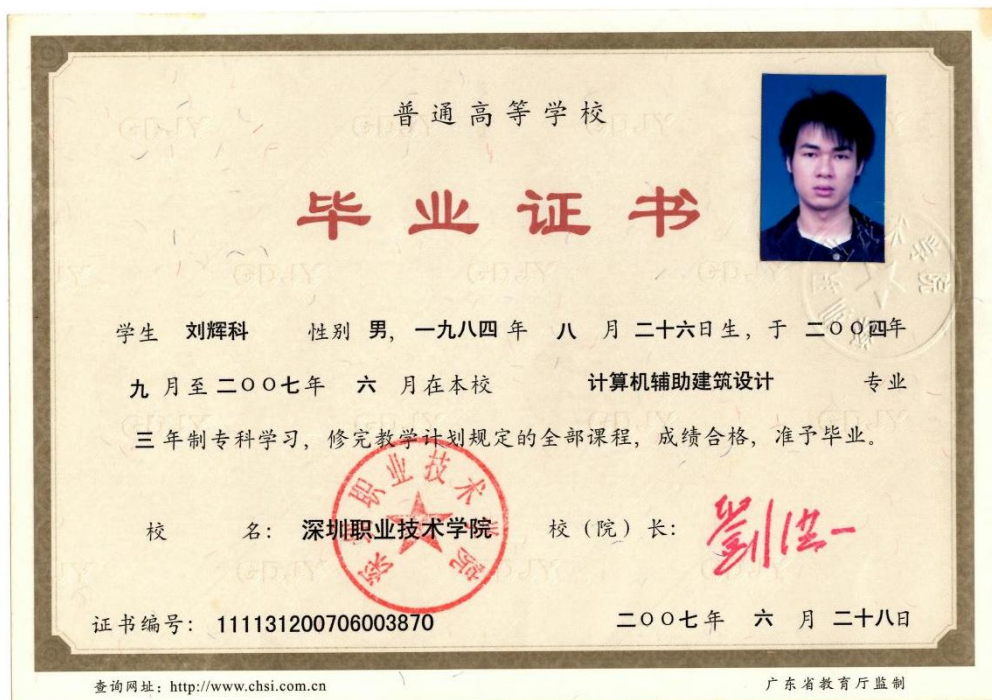 普通高等学校
毕业证书
学生 刘辉科 性别 男，一九八四年 八 月 二十六日生，于 二〇〇四年
九 月至 二〇〇七年 六 月在本校 计算机辅助建筑设计 专业
三 年制专科学习，修完教学计划规定的全部课程，成绩合格，准予毕业。
校 名：深圳职业技术学院 校（院）长：劉洪一
深圳职业技术学院
证书编号：111131200706003870 二〇〇七年 六 月 二十八日
查询网址：http://www.chsi.com.cn 广东省教育厅监制